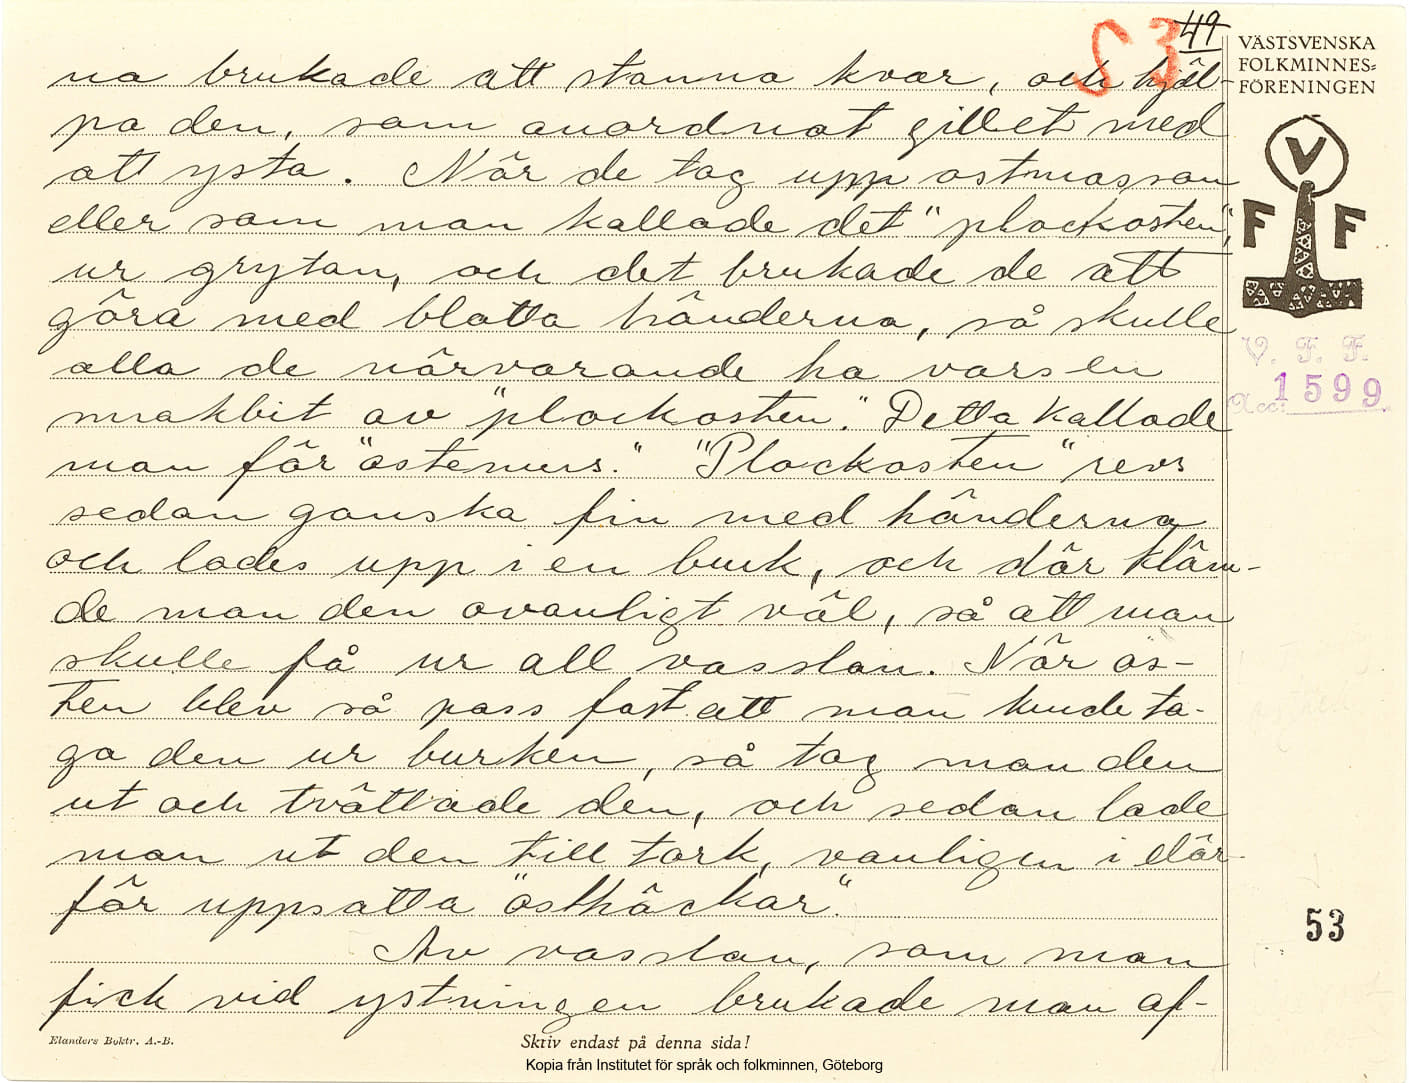 S 3 49
VÄSTSVENSKA
FOLKMINNES=
FÖRENINGEN
V
F F
V. F. F.
Acc: 1599
53
na brukade att stanna kvar, och hjäl-
pa den, som anordnat gillet med
att ysta. När de tog upp ostmassan
eller som man kallade det "plockosten",
ur grytan, och det brukade de att
göra med blotta händerna, så skulle
alla de närvarande ha vars en
makbit av "plockosten". Detta kallade
man för "östemurs." "Plockosten" revs
sedan ganska fin med händerna
och lades upp i en burk, och där kläm-
de man den ovanligt väl, så att man
skulle få ur all vasslan. När os-
ten blev så pass fast att man kunde ta-
ga den ur burken, så tog man den
ut och tvättade den, och sedan lade
man ut den till tork, vanligen i där-
för uppsatta "östhäckar".
Av vasslan, som man
fick vid ystningen brukade man af-
Elanders Boktr. A.-B.
Skriv endast på denna sida!
Kopia från Institutet för språk och folkminnen, Göteborg